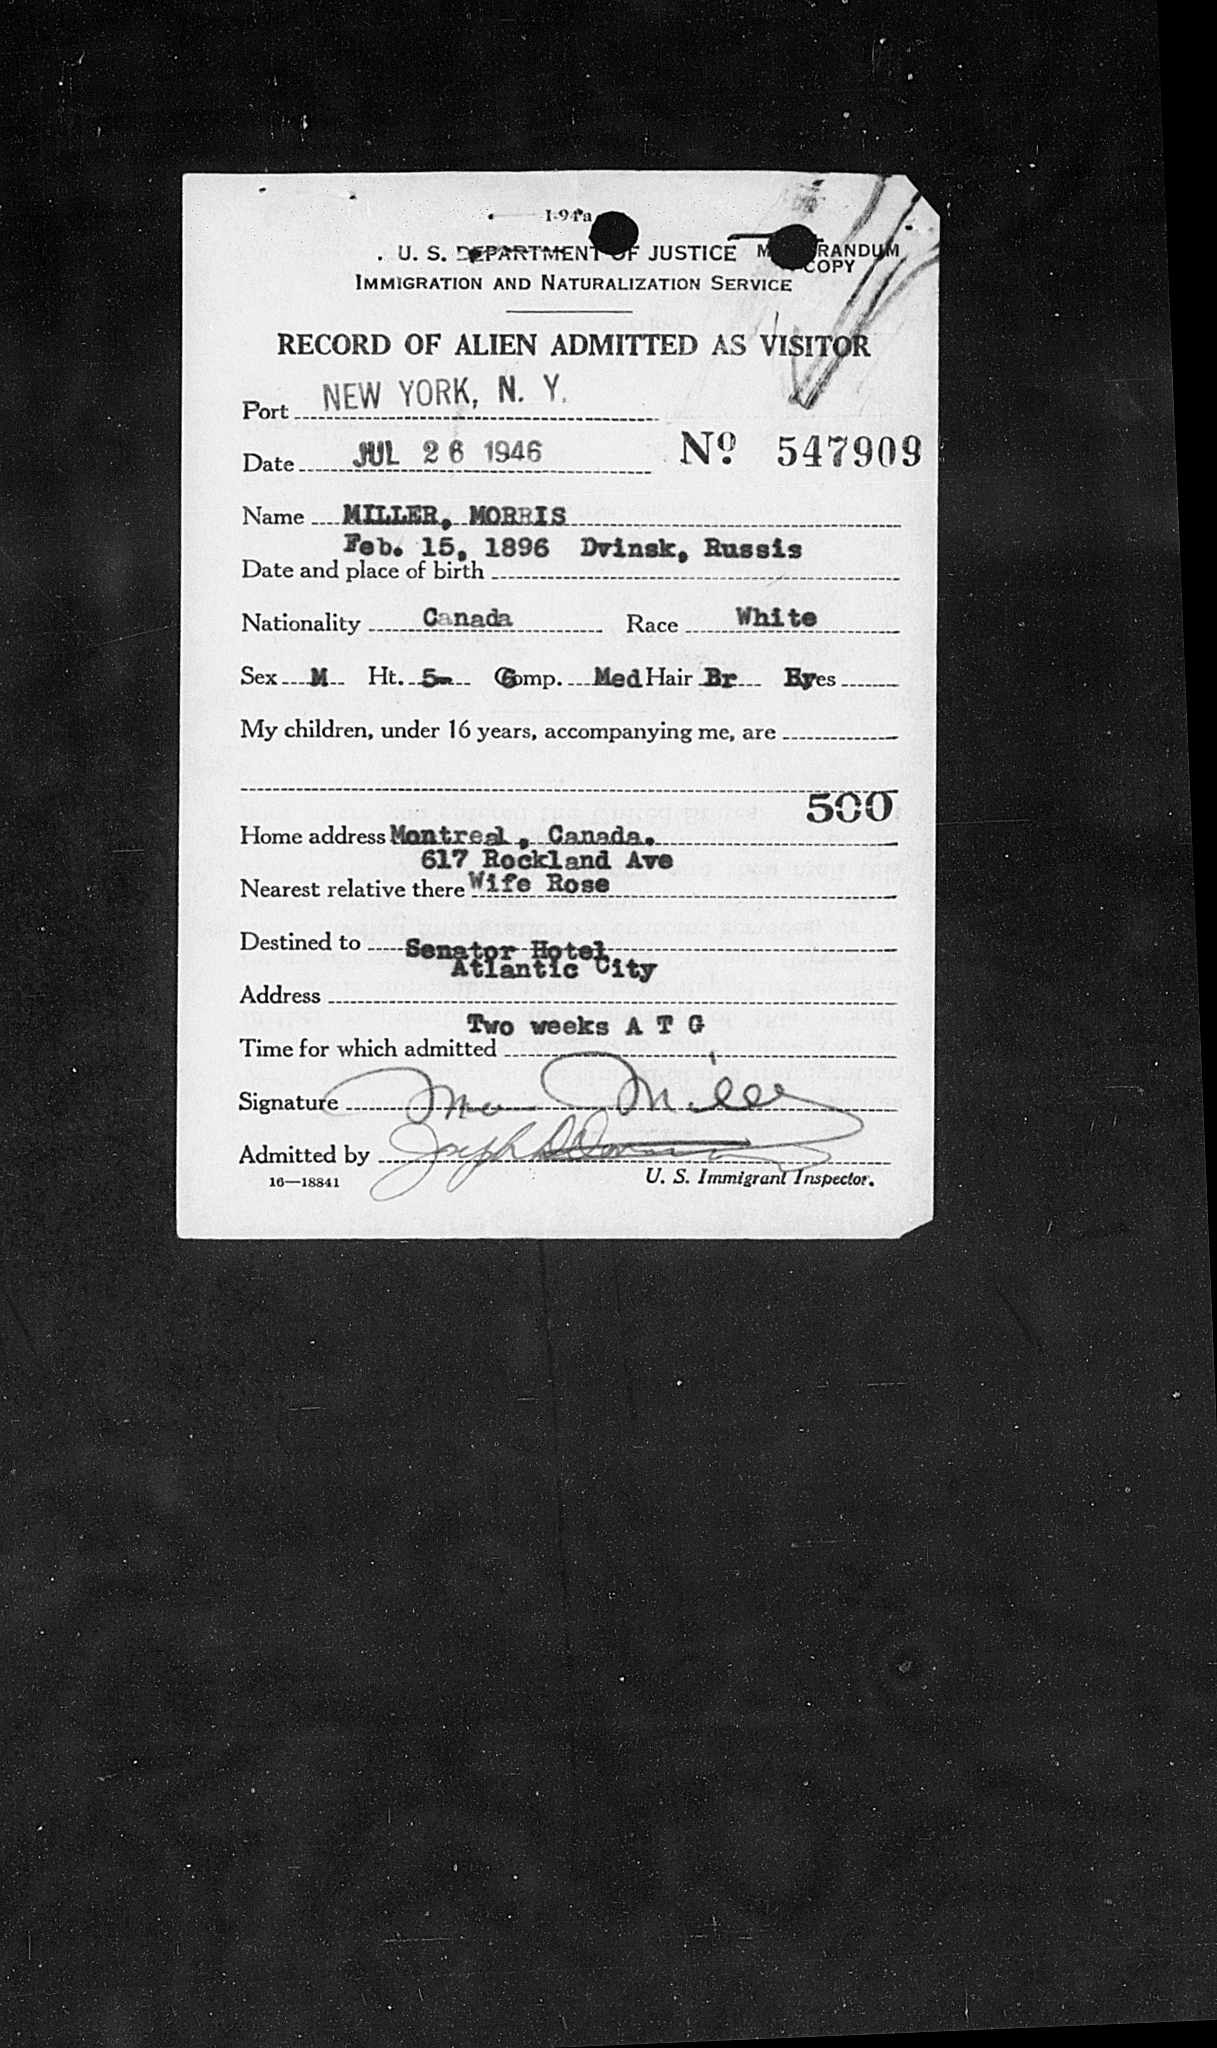 I-94a
U. S. DEPARTMENT OF JUSTICE MEMORANDUM
COPY
IMMIGRATION AND NATURALIZATION SERVICE
RECORD OF ALIEN ADMITTED AS VISITOR
Port NEW YORK, N. Y.
Date JUL 26 1946 No. 547909
Name MILLER, MORRIS
Feb. 15, 1896 Dvinsk, Russis
Date and place of birth
Nationality Canada Race White
Sex M Ht. 5- 6 Comp. Med Hair Br Eyes
My children, under 16 years, accompanying me, are
500
Home address Montreal, Canada.
617 Rockland Ave
Nearest relative there Wife Rose
Destined to Senator Hotel
Atlantic City
Address
Two weeks A T G
Time for which admitted
Signature Mo Miller
Admitted by Joseph
16—18841 U. S. Immigrant Inspector.